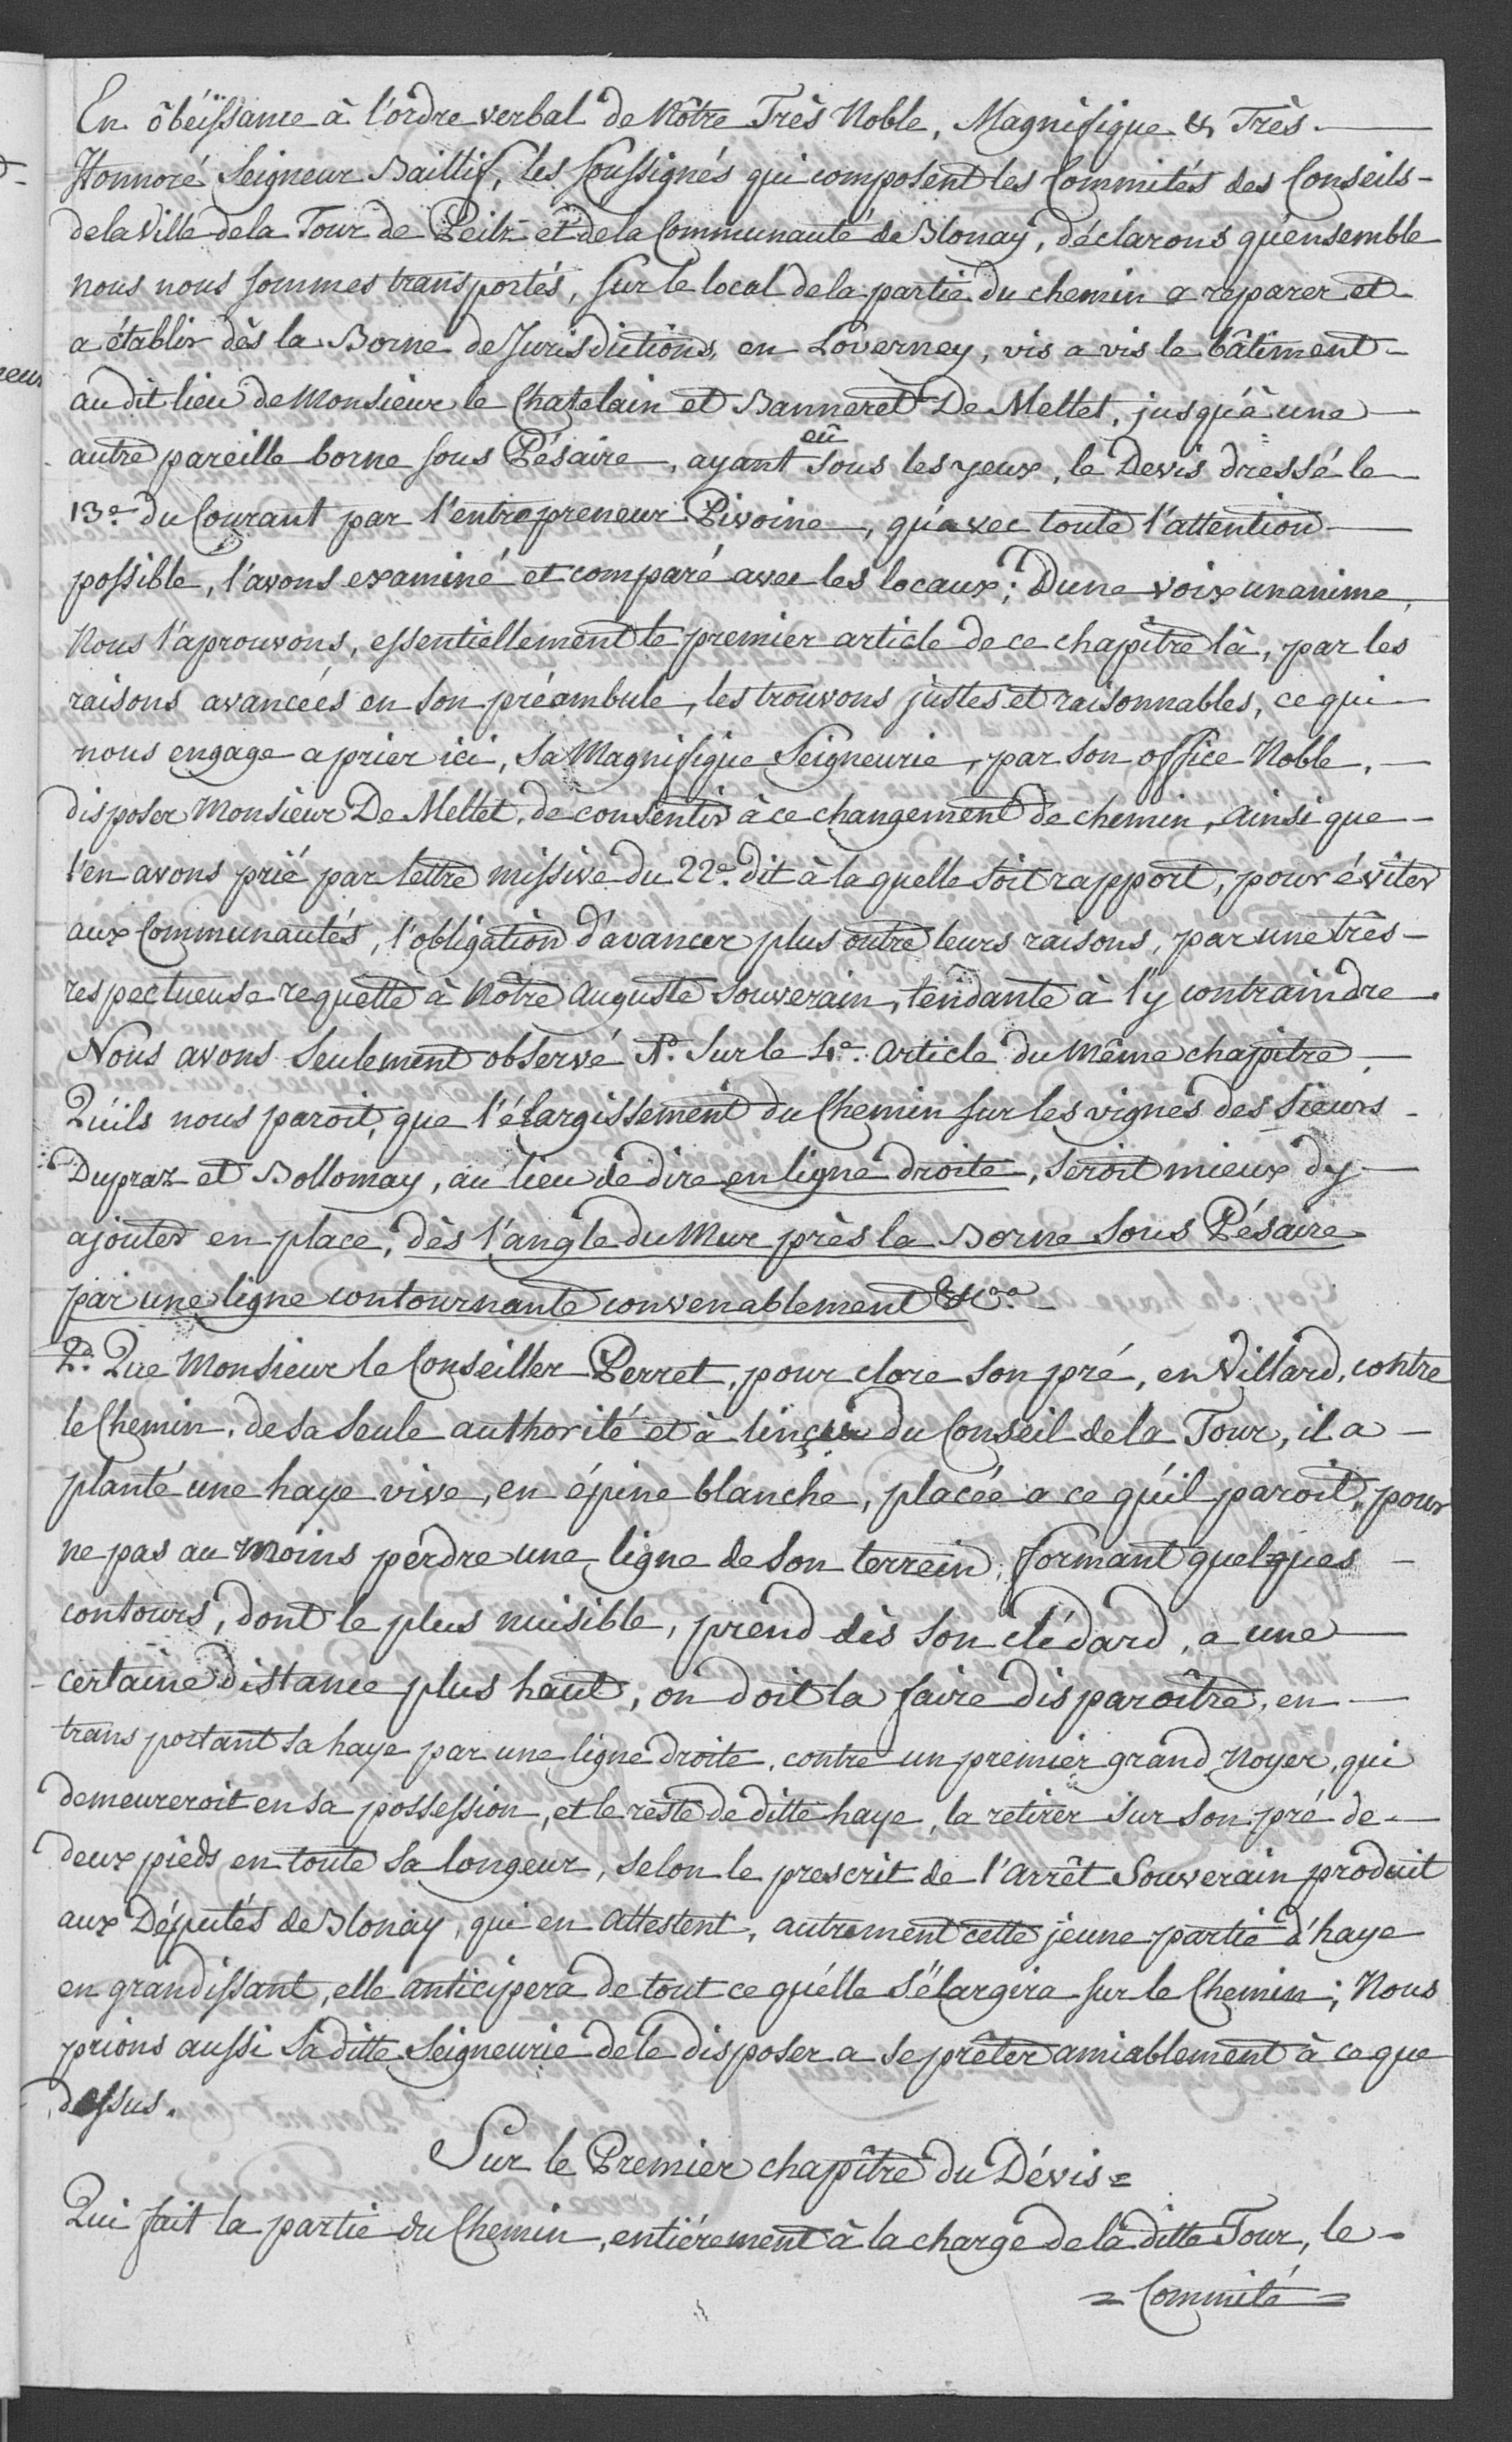 En ôbéïssance à l'ordre verbal de Nôtre Très Noble, Magnifique & Très
Honnoré Seigneur Baillif, les soussignés qui composent les Commités des Conseils
de la Ville de la Tour de Peilz et de la Communauté de Blonay, déclarons qu'ensemble
nous nous sommes transportés, sur le local de la partie du chemin a reparer et
a établir dès la Borne de Jurisdictions, en Loverney, vis a vis le bâtiment
au dit lieu de Monsieur le Chatelain et Banneret De Mellet, jusqu'à une
autre pareille borne sous Pésaire, ayant eû sous les yeux, le Devis dressé le
13e. du Courant par l'entrepreneur Pivoine, qu'avec toute l'attention
possible, l'avons examiné et comparé avec les locaux; D'une voix unanime,
Nous l'aprouvons, essentiellement le premier article de ce chapitre là, par les
raisons avancées en son préambule, les trouvons justes et raisonnables, ce qui
nous engage a prier ici, Sa Magnifique Seigneurie, par son office Noble,
disposer Monsieur De Mellet, de consentir à ce changement de chemin, Ainsi que
l'en avons prié par lettre missive du 22e. dit à laquelle soit rapport, pour éviter
aux Communautés, l'obligation d'avancer plus outre leurs raisons, par une très
respectueuse requette à Nôtre Auguste Souverain, tendante à l'y contraindre.
Nous avons seulement observé 1o. Sur le 4e. Article du Même chapitre
Qu'ils nous paroit, que l'élargissement du Chemin sur les vignes des Sieurs
Dupraz et Bollomay, au lieu de dire en ligne droite, seroit mieux d'y
ajouter en place, dès l'angle du Mur près la Borne sous Pésaire
par une ligne contournante convenablement &ca.
2o. Que Monsieur le Conseiller Perret, pour clore son pré, en Villard, contre
le Chemin, de sa seule authorité et à l'inçu du Conseil de la Tour, il a
planté une haye vive, en épine blanche, placée a ce qu'il paroit, pour
ne pas au moins perdre une ligne de son terrein, formant quelques
contours, dont le plus nuisible, prend dès son clédard, a une
certaine distance plus haut, on doit la faire disparoître, en
transportant sa haye par une ligne droite, contre un premier grand Noyer, qui
demeureroit en sa possession, et le reste de ditte haye, la retirer sur son pré de
deux pieds en toute sa longeur, selon le prescrit de l'Arrêt Souverain produit
aux Députés de Blonay, qui en Attestent, autrement cette jeune partie d'haye
en grandissant, elle anticipera de tout ce qu'elle s'élargira sur le Chemin; Nous
prions aussi Sa ditte Seigneurie de le disposer a se prêter amiablement à ce que
dessus.
Sur le Premier chapître du Dévis =
Qui fait la partie du Chemin, entiérement à la charge de la ditte Tour, le
= Commité =